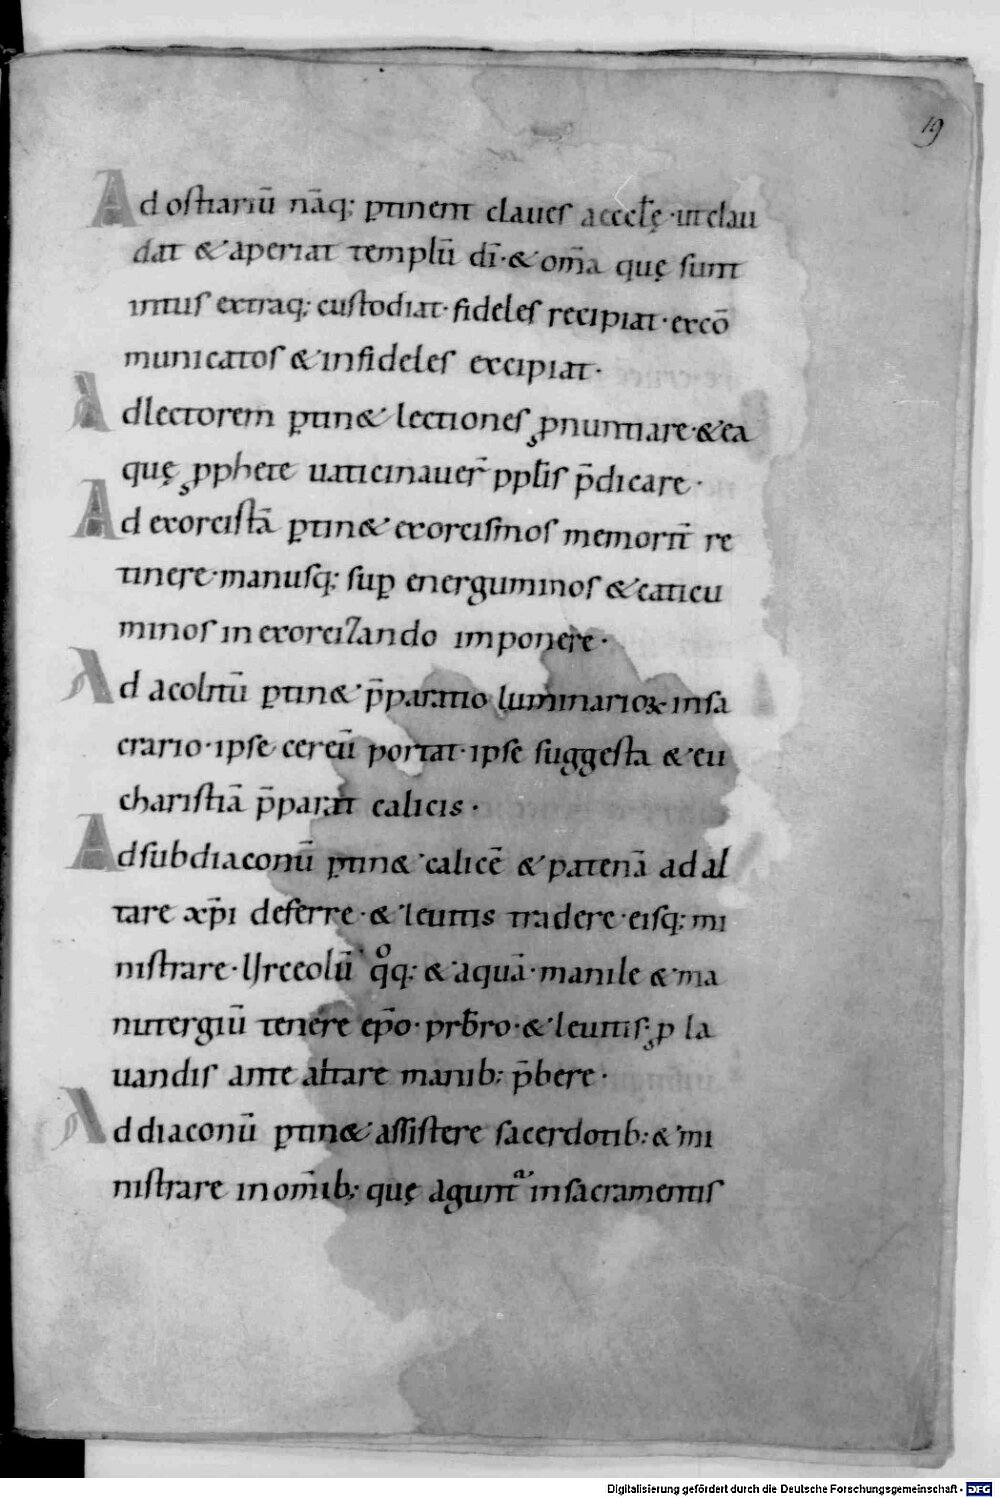 19
Ad ostiariũ nãq; ꝑtinent claues aecclę · ut clau
dat & aperiat templũ dĩ · & om̃a quę sunt
intus extraq; custodiat · fideles recipiat · excõ
municatos & infideles excipiat ·
Ad lectorem ꝑtin& lectiones ꝓnuntiare · & ea
quę ꝓphete uaticinauer̃ pplĩs p̃dicare ·
Ad exorcistã ꝑtin& exorcismos memorit̃ re
tinere · manusq; suꝑ energuminos & caticu
minos in exorcizando imponere ·
Ad acolitũ ꝑtin& p̃paratio luminarioꝝ in sa
crario · ipse cereũ portat · ipse suggesta & eu
charistiã p̃parat calicis ·
Ad subdiaconũ ꝑtin& calicẽ & patenã ad al
tare xp̃i deferre · & leuitis tradere · eisq; mi
nistrare · Urceolũ qͦq; & aquã · manile & ma
nutergiũ tenere ep̃o · prb̃ro · & leuitis ; ꝓ la
uandis ante altare manib; p̃bere ·
Ad diaconũ ꝑtin& assistere sacerdotib; & mi
nistrare in om̃ib; quę agunt᷑ in sacramentis
Digitalisierung gefördert durch die Deutsche Forschungsgemeinschaft - DFG